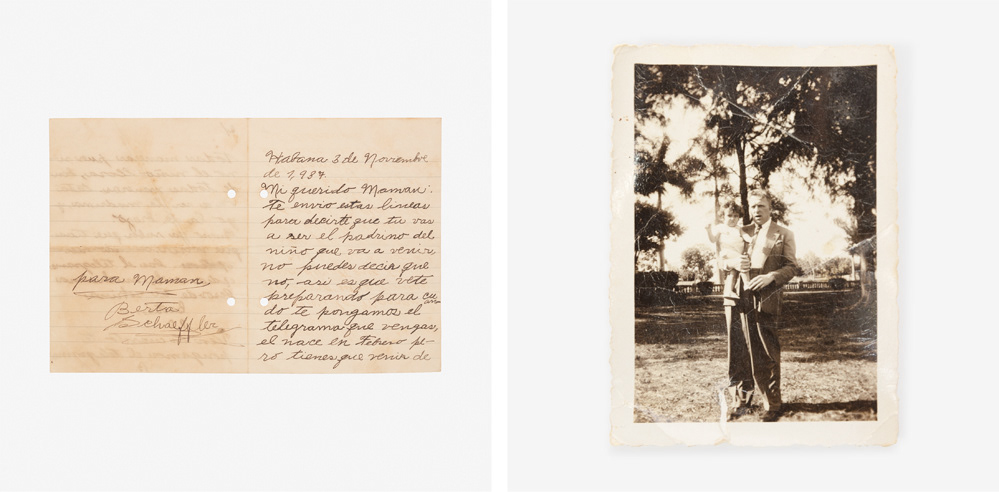 para Maman.
Berta
Schaeffler
Habana 3 de Noviembre
de 1,937.
Mi querido Maman:
te envio estas lineas
para decirte que tu vas
a ser el padrino del
niño que va a venir
no puedes decir que
no, asi es que vete
preparando para cuan
do te pongamos el
telegrama que vengas,
el nace en Febrero pe-
ro tienes que venir de